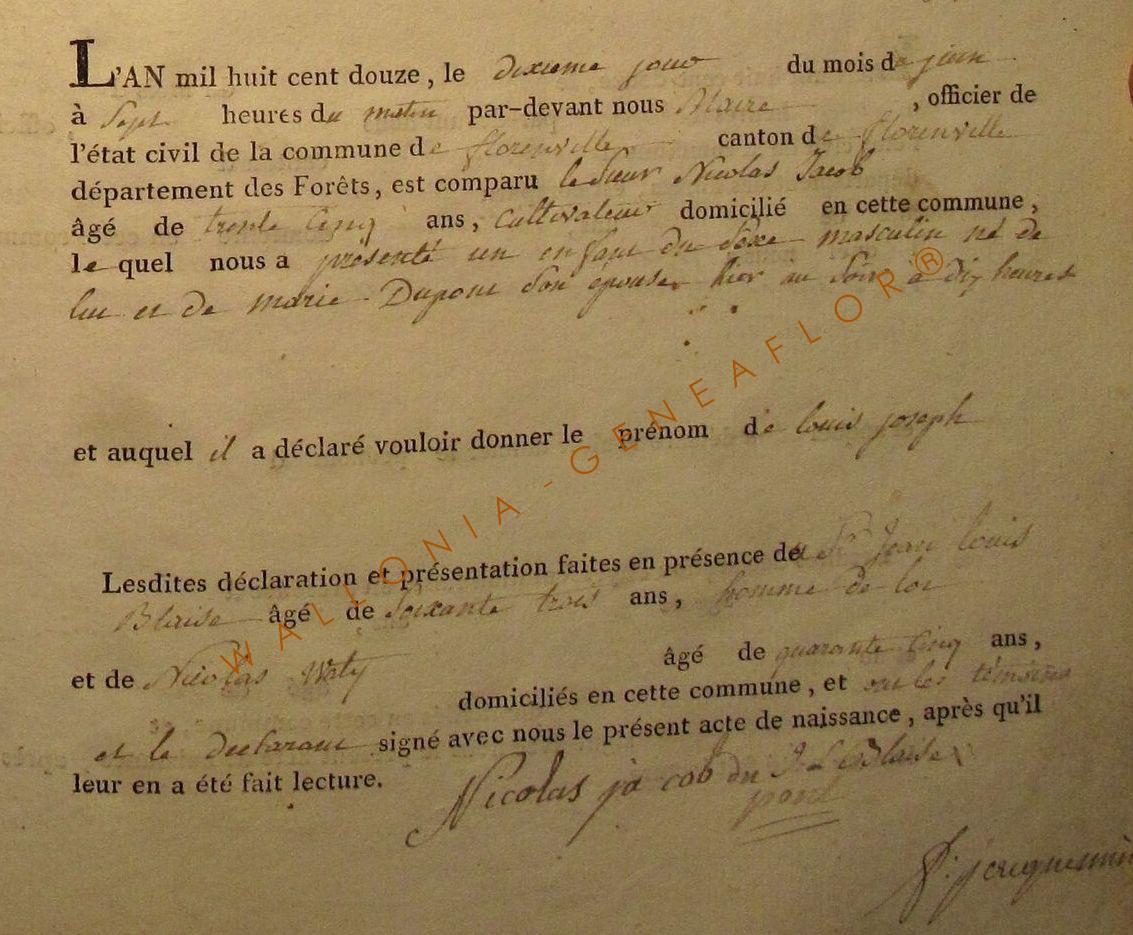 L'AN mil huit cent douze, le dixieme jour du mois de juin
à Sept heures du matin par-devant nous Maire, officier de
l'état civil de la commune de florenville canton de florenville
département des Forêts, est comparu le Sieur Nicolas Jacob
âgé de trente Cinq ans, Cultivateur domicilié en cette commune,
le quel nous a présenté un enfant du Sexe masculin né de
lui et de marie Dupont Son épouse, hier au Soir à dix heures
et auquel il a déclaré vouloir donner le prénom de louis joseph
Lesdites déclaration et présentation faites en présence de Sr Jean louis
Blaise âgé de Soixante trois ans, homme de loi
et de Nicolas Waty âgé de quarante Cinq ans,
domiciliés en cette commune, et ont les témoins
et le declarant signé avec nous le présent acte de naissance, après qu'il
leur en a été fait lecture.
Nicolas ja cob du J L Blaise
pont
jacquemin
WALLONIA-GENEAFLOR®